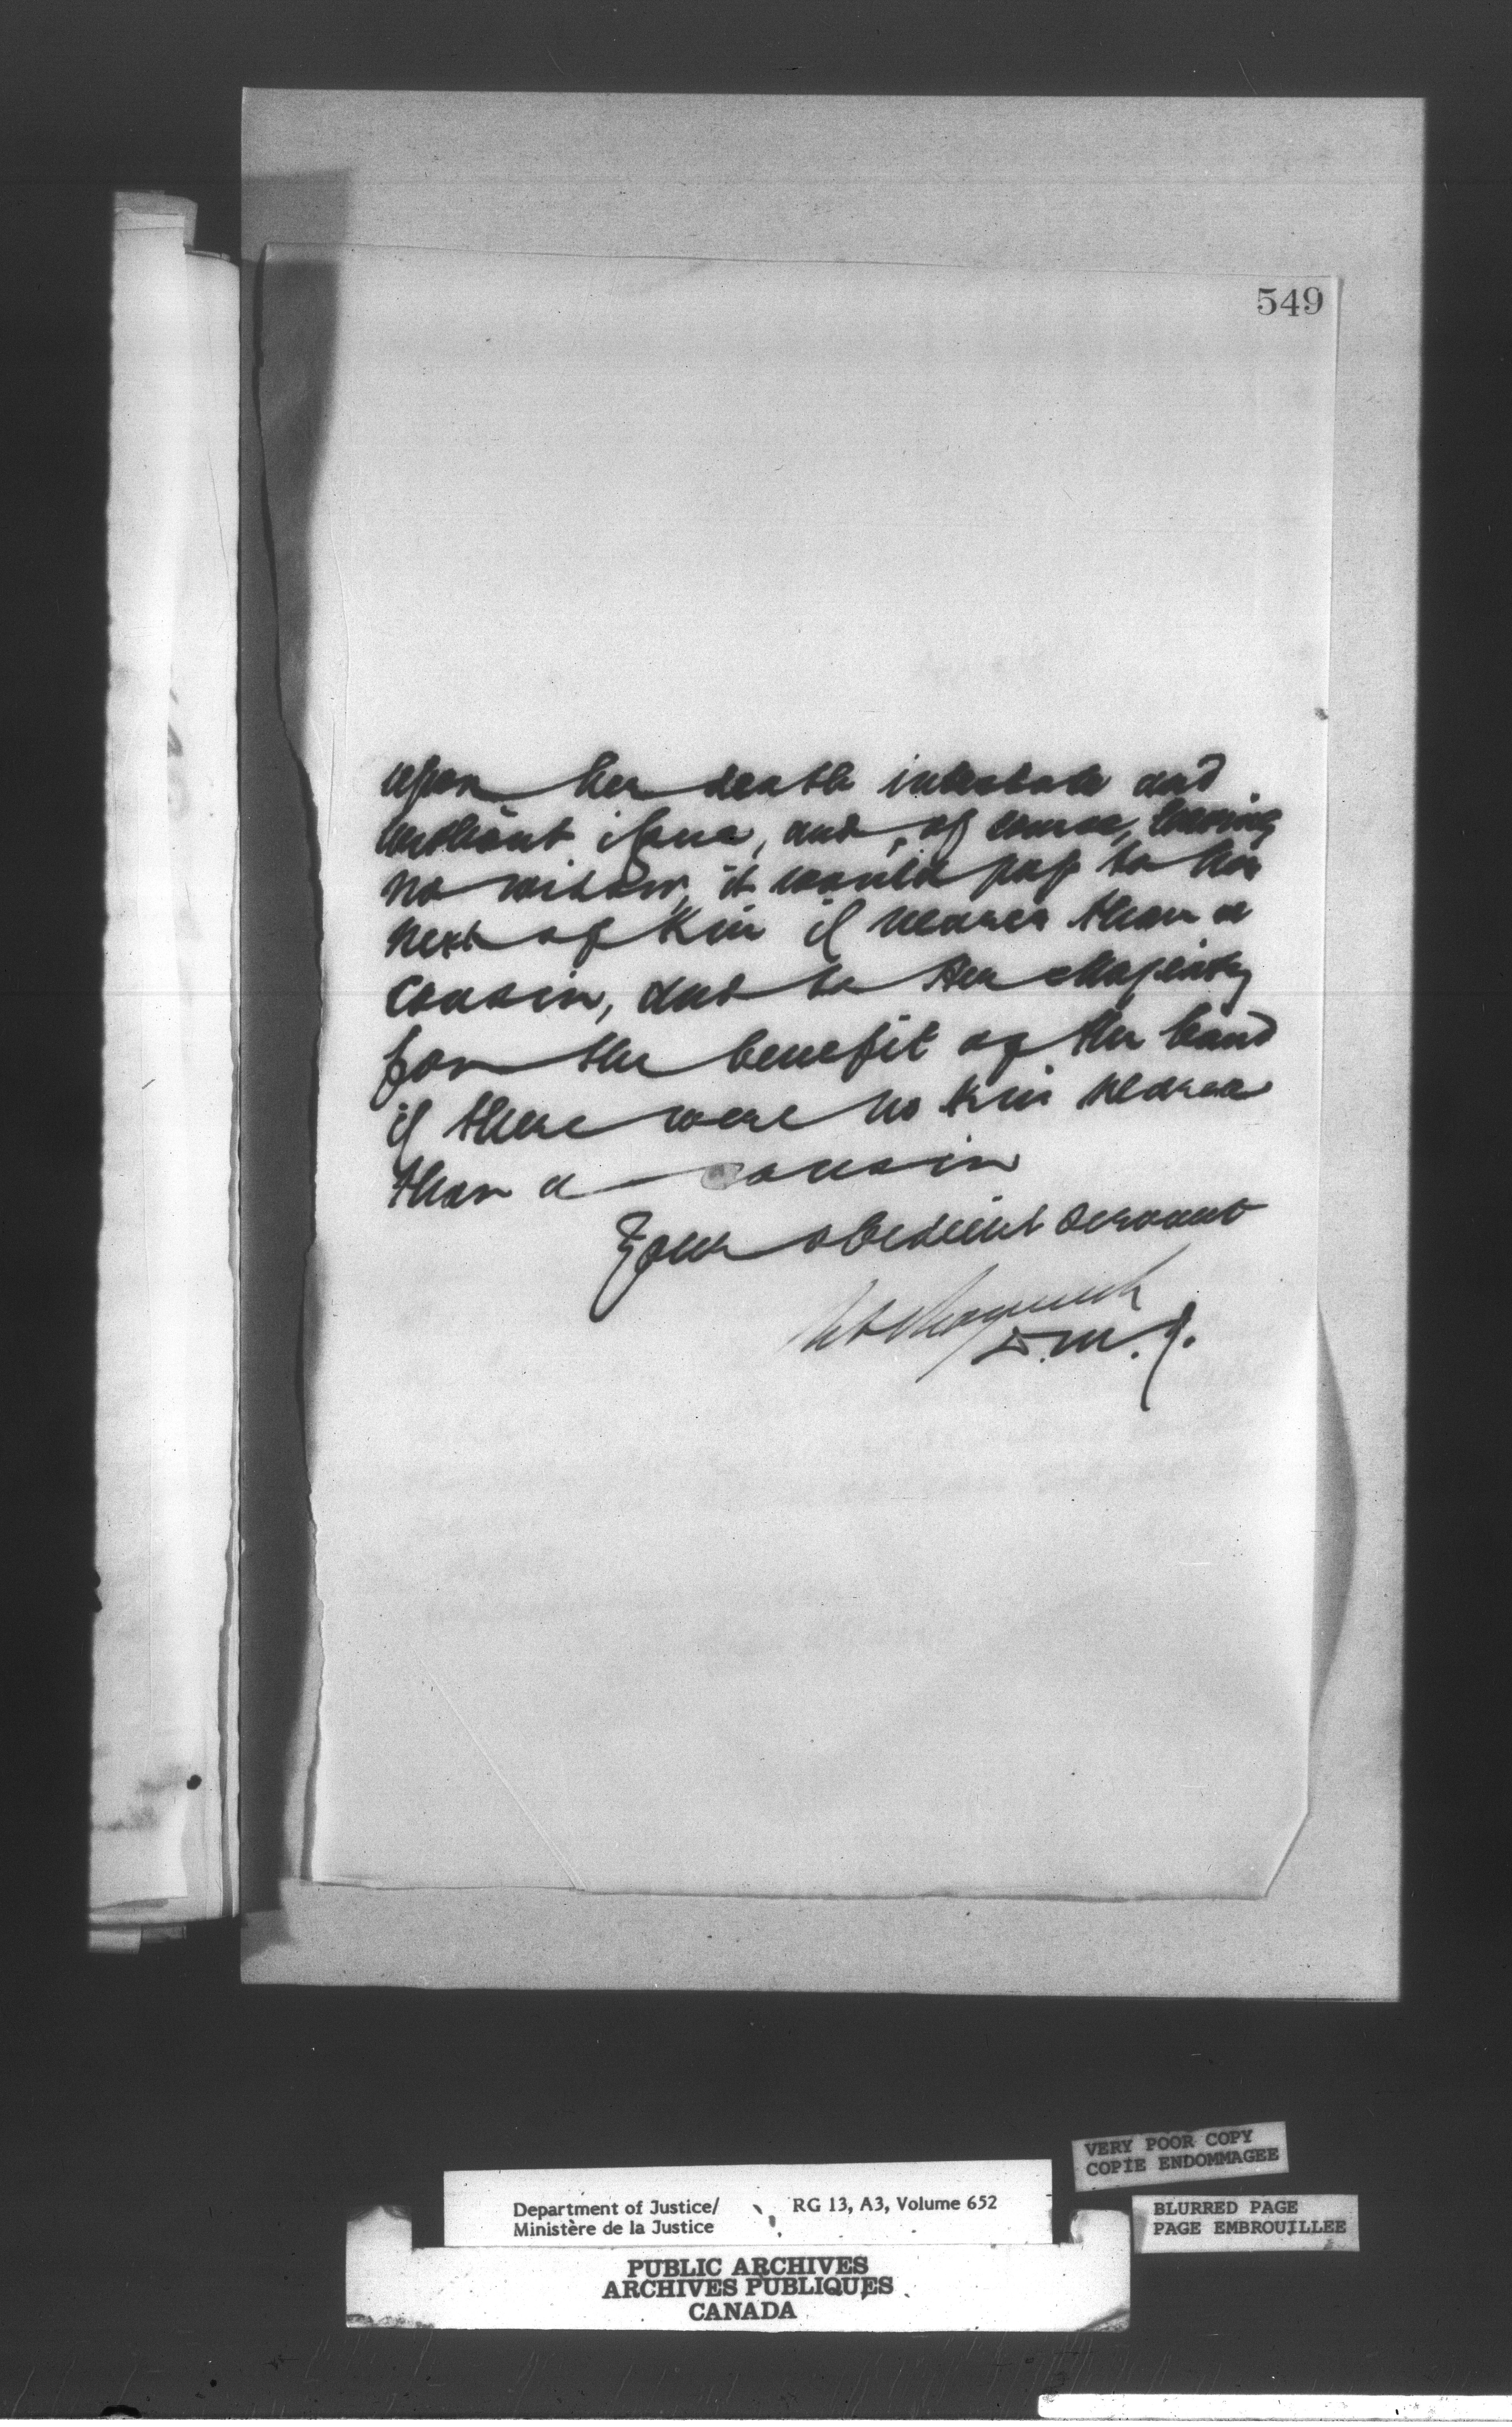 549
upon her death intestate and
without issue, and, of course, leaving
no widow, it would pass to her
next of kin if nearer than a
cousin, and to Her Majesty
for the benefit of the band
if there were no kin nearer
than a cousin
Your obedient servant
D.M.J.
VERY POOR COPY
COPIE ENDOMMAGEE
Department of Justice/ RG 13, A3, Volume 652
Ministère de la Justice
BLURRED PAGE
PAGE EMBROUILLEE
PUBLIC ARCHIVES
ARCHIVES PUBLIQUES
CANADA